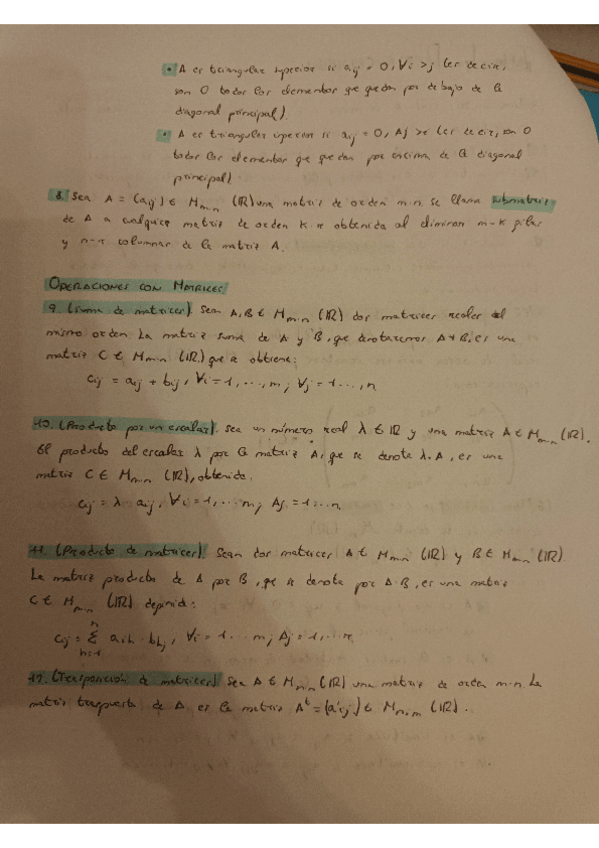 • A es triangular superior si aij = 0, ∀i > j (es decir,
son 0 todos los elementos que quedan por debajo de la
diagonal principal).
• A es triangular inferior si aij = 0, Aj > i (es decir, son 0
todos los elementos que quedan por encima de la diagonal
principal)
8. Sea A = (aij) ∈ Mm·n (ℝ) una matriz de orden m·n. se llama submatriz
de A a cualquier matriz de orden k·r obtenida al eliminar m-k filas
y n-r columnas de la matriz A.
OPERACIONES CON MATRICES
9. (Suma de matrices). Sean A, B ∈ Mm·n (ℝ) dos matrices reales del
mismo orden. La matriz suma de A y B, que denotaremos A + B, es una
matriz C ∈ Mm·n (ℝ) que se obtiene:
cij = aij + bij, ∀i = 1, ..., m; ∀j = 1..., n
10. (Producto por un escalar). Sea un número real λ ∈ ℝ y una matriz A ∈ Mm·n (ℝ).
El producto del escalar λ por la matriz A, que se denota λ.A, es una
matriz C ∈ Mm·n (ℝ), obtenida:
cij = λ · aij, ∀i = 1, ... m; Aj = 1 ... n
11. (Producto de matrices). Sean dos matrices A ∈ Mm·n (ℝ) y B ∈ Mm·n (ℝ).
La matriz producto de A por B, que se denota por A·B, es una matriz
C ∈ Mm·n (ℝ) definida:
cij = Σ aih · bhj, ∀i = 1 ... m; Aj = 1, ..., n
n
h=1
(Trasposición de matrices) Sea A ∈ Mm·n (ℝ) una matriz de orden m·n. La
matriz traspuesta de A, es la matriz Aᵗ = (a'ij) ∈ Mn·m (ℝ).